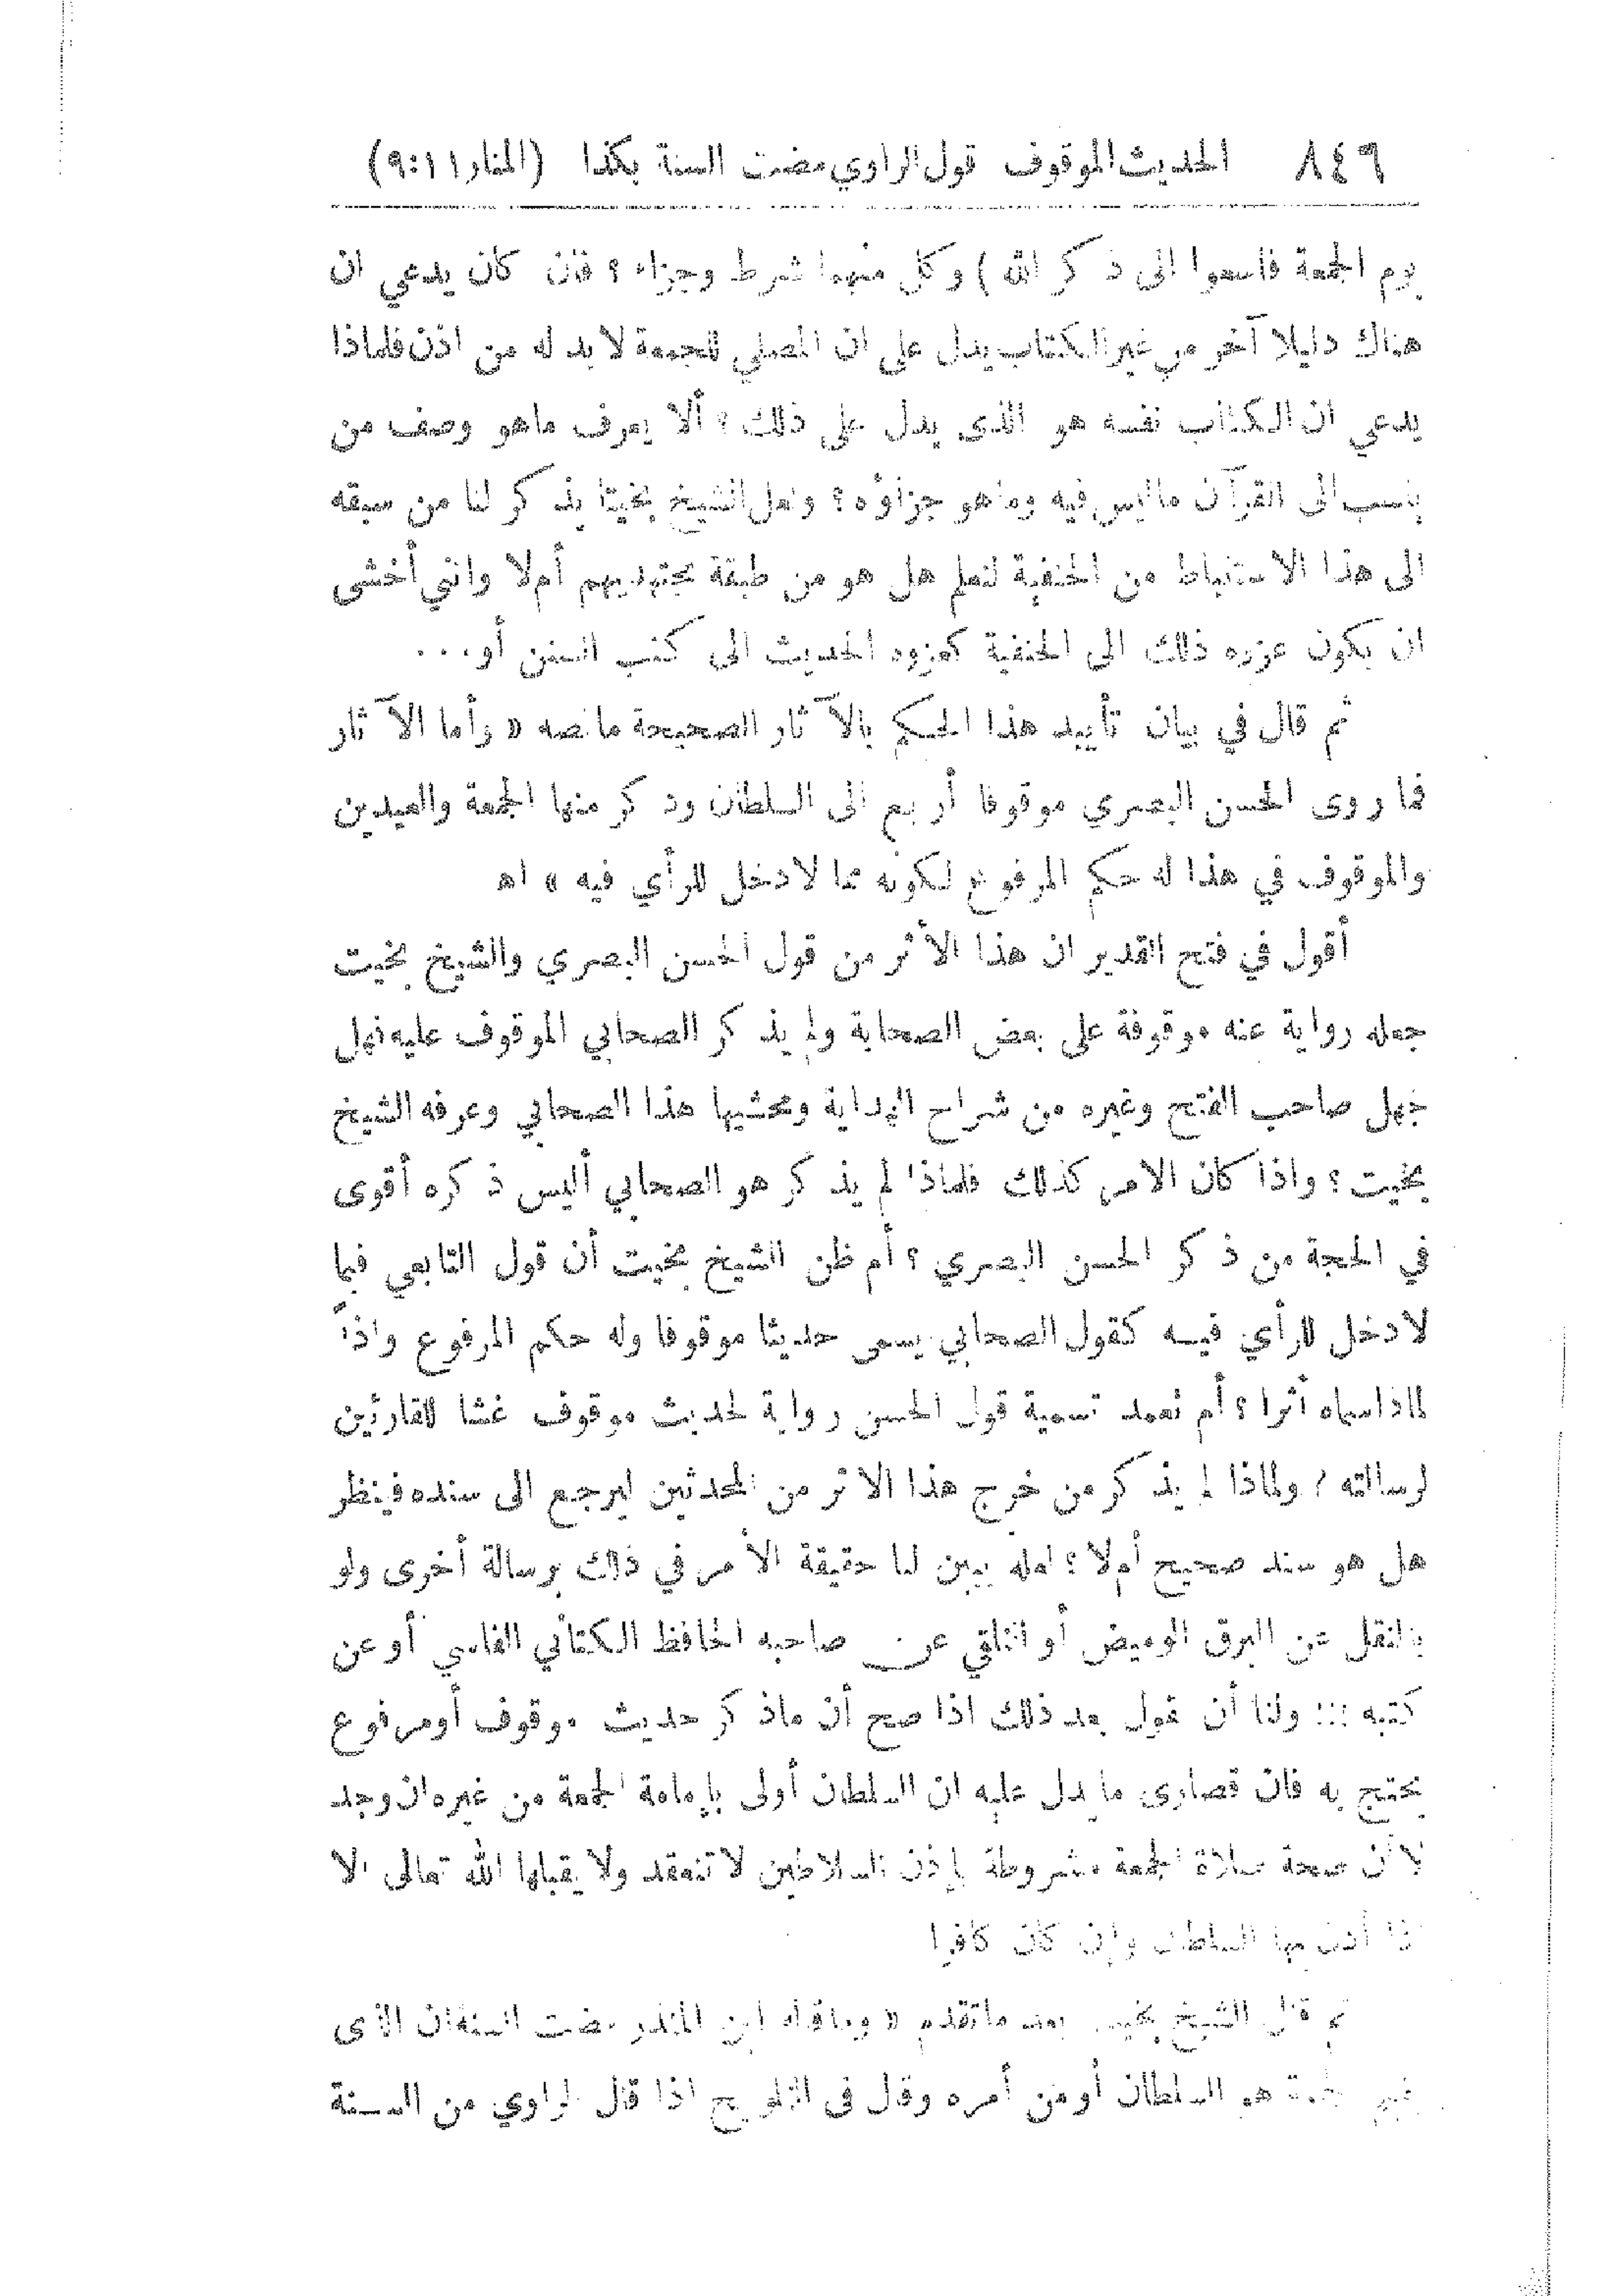 ٨٤٦ الحديث الموقوف قول الراوي مضت السنة بكذا (المنار ١١:٩)
يوم الجمعة فاسعوا الى ذكر الله) وكل منهما شرط وجزاء؟ فان كان يدعي ان
هناك دليلا آخر من غير الكتاب يدل على ان المصلي للجمعة لا بد له من اذن فلماذا
يدعي ان الكتاب نفسه هو الذي يدل على ذلك؟ ألا يعرف ماهو وصف من
ينسب الى القرآن ما ليس فيه وما هو جزاؤه؟ ولعل الشيخ بخيتا يذكر لنا من سبقه
الى هذا الاستنباط من الحنفية لنعلم هل هو من طبقة مجتهديهم أم لا وانني أخشى
ان يكون عزوه ذلك الى الحنفية كعزوه الحديث الى كتب السنن أو...
ثم قال في بيان تأييد هذا الحكم بالآثار الصحيحة ما نصه « وأما الآثار
فما روى الحسن البصري موقوفا أربع الى السلطان وذكر منها الجمعة والعيدين
والموقوف في هذا له حكم المرفوع لكونه مما لا دخل للرأي فيه » اه
أقول في فتح القدير ان هذا الأثر من قول الحسن البصري والشيخ بخيت
جعله رواية عنه موقوفة على بعض الصحابة ولم يذكر الصحابي الموقوف عليه فهل
جهل صاحب الفتح وغيره من شراح الهداية ومحشيها هذا الصحابي وعرفه الشيخ
بخيت؟ واذا كان الامر كذلك فلماذا لم يذكر هو الصحابي أليس ذكره أقوى
في الحجة من ذكر الحسن البصري؟ أم ظن الشيخ بخيت أن قول التابعي فيما
لا دخل للرأي فيه كقول الصحابي يسمى حديثا موقوفا وله حكم المرفوع واذاً
لماذا سماه أثرا؟ أم تعمد تسمية قول الحسن رواية لحديث موقوف غشا للقارئين
لرسالته؟ ولماذا لم يذكر من خرج هذا الاثر من المحدثين ليرجع الى سنده فينظر
هل هو سند صحيح أم لا؟ لعله يبين لنا حقيقة الأمر في ذلك برسالة أخرى ولو
بالنقل عن البرق الوميض أو التلقي عن صاحبه الحافظ الكتاني الفاسي أو عن
كتبه !!! ولنا أن نقول بعد ذلك اذا صح أن ماذكر حديث موقوف أو مرفوع
يحتج به فان قصارى ما يدل عليه ان السلطان أولى بإمامة الجمعة من غيره ان وجد
لا أن صحة صلاة الجمعة مشروطة بإذن السلاطين لا تنعقد ولا يقبلها الله تعالى الا
اذا أذن بها السلطان وإن كان كافرا
ثم قال الشيخ بخيت بعد ماتقدم « وبما قاله ابن المنذر مضت السنة ان الذي
يقيم الجمعة هو السلطان أو من أمره وقال في التلويح اذا قال الراوي من السنة